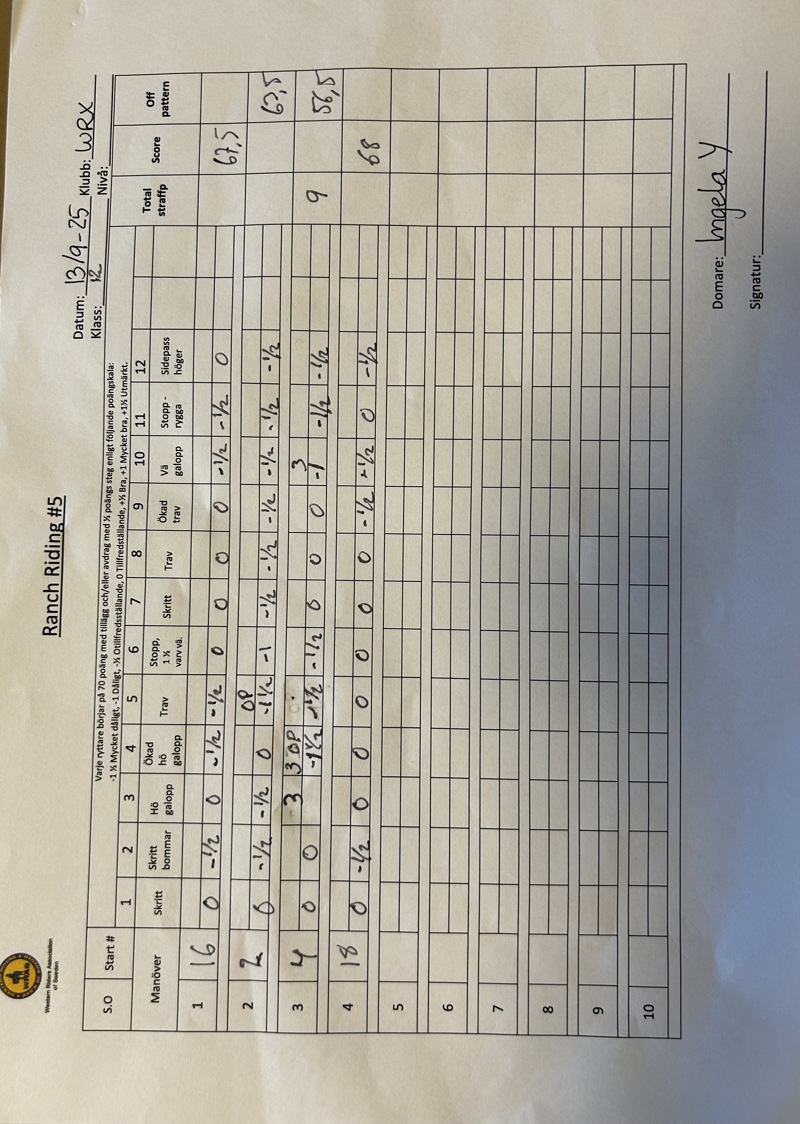 Western Riders Association
of Sweden
Ranch Riding #5
Datum: 13/9-25 Klubb: WRX
Klass: 12 Nivå:
Varje ryttare börjar på 70 poäng med tillägg och/eller avdrag med ½ poängs steg enligt följande poängskala:
-1 ½ Mycket dåligt, -1 Dåligt, -½ Otillfredsställande, 0 Tillfredställande, +½ Bra, +1 Mycket bra, +1½ Utmärkt.
S.O Start # 1 2 3 4 5 6 7 8 9 10 11 12 Total straffp Score Off pattern
Manöver Skritt Skritt bommar Hö galopp Ökad hö galopp Trav Stopp, 1 ½ varv vä. Skritt Trav Ökad trav Vä galopp Stopp - rygga Sidepass höger
1 16 0 -½ 0 -½ -½ 0 0 0 0 -½ -½ 0 67,5
OP
2 2 0 -½ -½ 0 -1½ -1 -½ -½ -½ -½ -½ -½ 63,5
3 3 OP 3
3 4 0 0 -1½ -1½ -½ 0 0 0 -1 -½ -½ 9 56,5
4 18 0 -½ 0 0 0 0 0 0 -½ -½ 0 -½ 68
5
6
7
8
9
10
Domare: Ingela Y
Signatur: